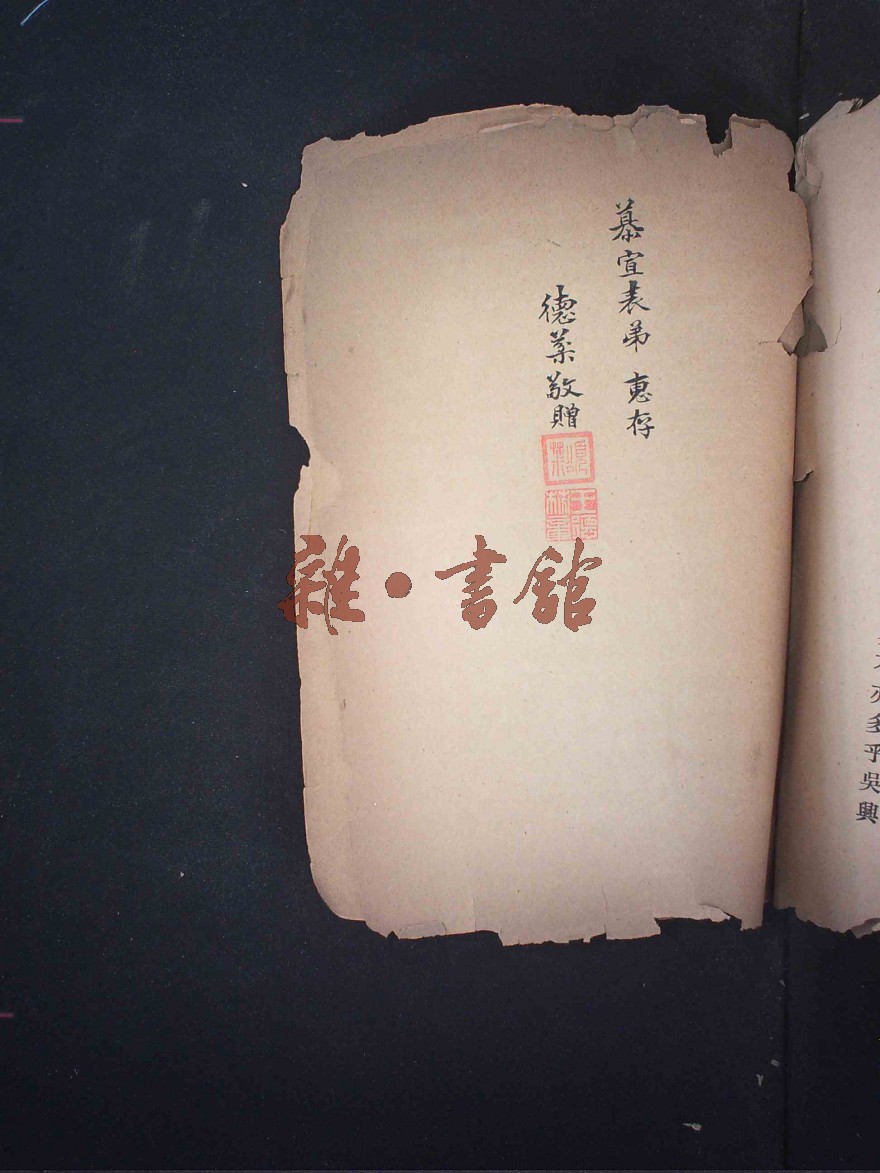 慕宣表弟 惠存
德棻敬贈
雜·書館
亦多乎吳興